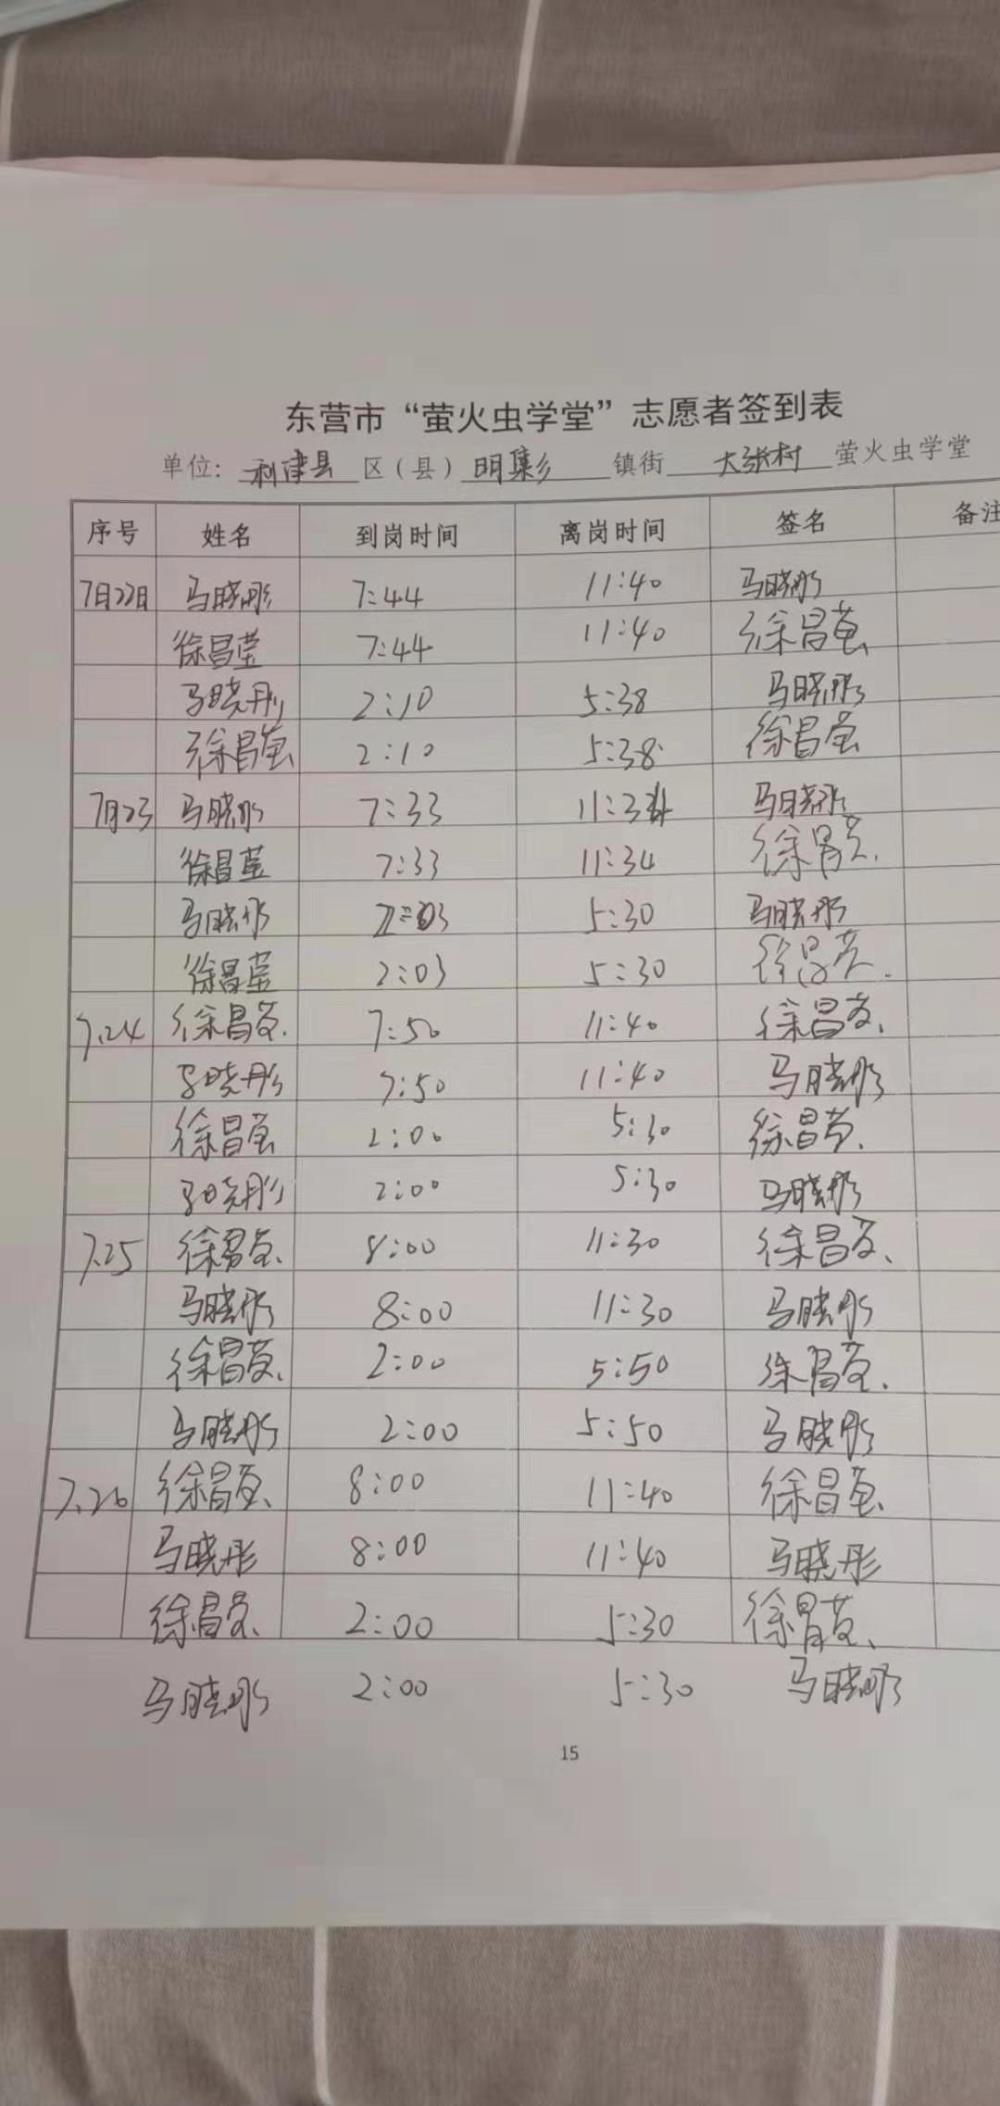 东营市“萤火虫学堂”志愿者签到表
单位：利津县 区（县）明集乡 镇街 大张村 萤火虫学堂
序号 姓名 到岗时间 离岗时间 签名 备注
7月22日 马晓彤 7:44 11:40 马晓彤
徐昌莹 7:44 11:40 徐昌莹
马晓彤 2:10 5:38 马晓彤
徐昌莹 2:10 5:38 徐昌莹
7月23 马晓彤 7:33 11:34 马晓彤
徐昌莹 7:33 11:34 徐昌莹
马晓彤 2:03 5:30 马晓彤
徐昌莹 2:03 5:30 徐昌莹
7.24 徐昌莹 7:50 11:40 徐昌莹
马晓彤 7:50 11:40 马晓彤
徐昌莹 2:00 5:30 徐昌莹
马晓彤 2:00 5:30 马晓彤
7.25 徐昌莹 8:00 11:30 徐昌莹
马晓彤 8:00 11:30 马晓彤
徐昌莹 2:00 5:50 徐昌莹
马晓彤 2:00 5:50 马晓彤
7.26 徐昌莹 8:00 11:40 徐昌莹
马晓彤 8:00 11:40 马晓彤
徐昌莹 2:00 5:30 徐昌莹
马晓彤 2:00 5:30 马晓彤
15